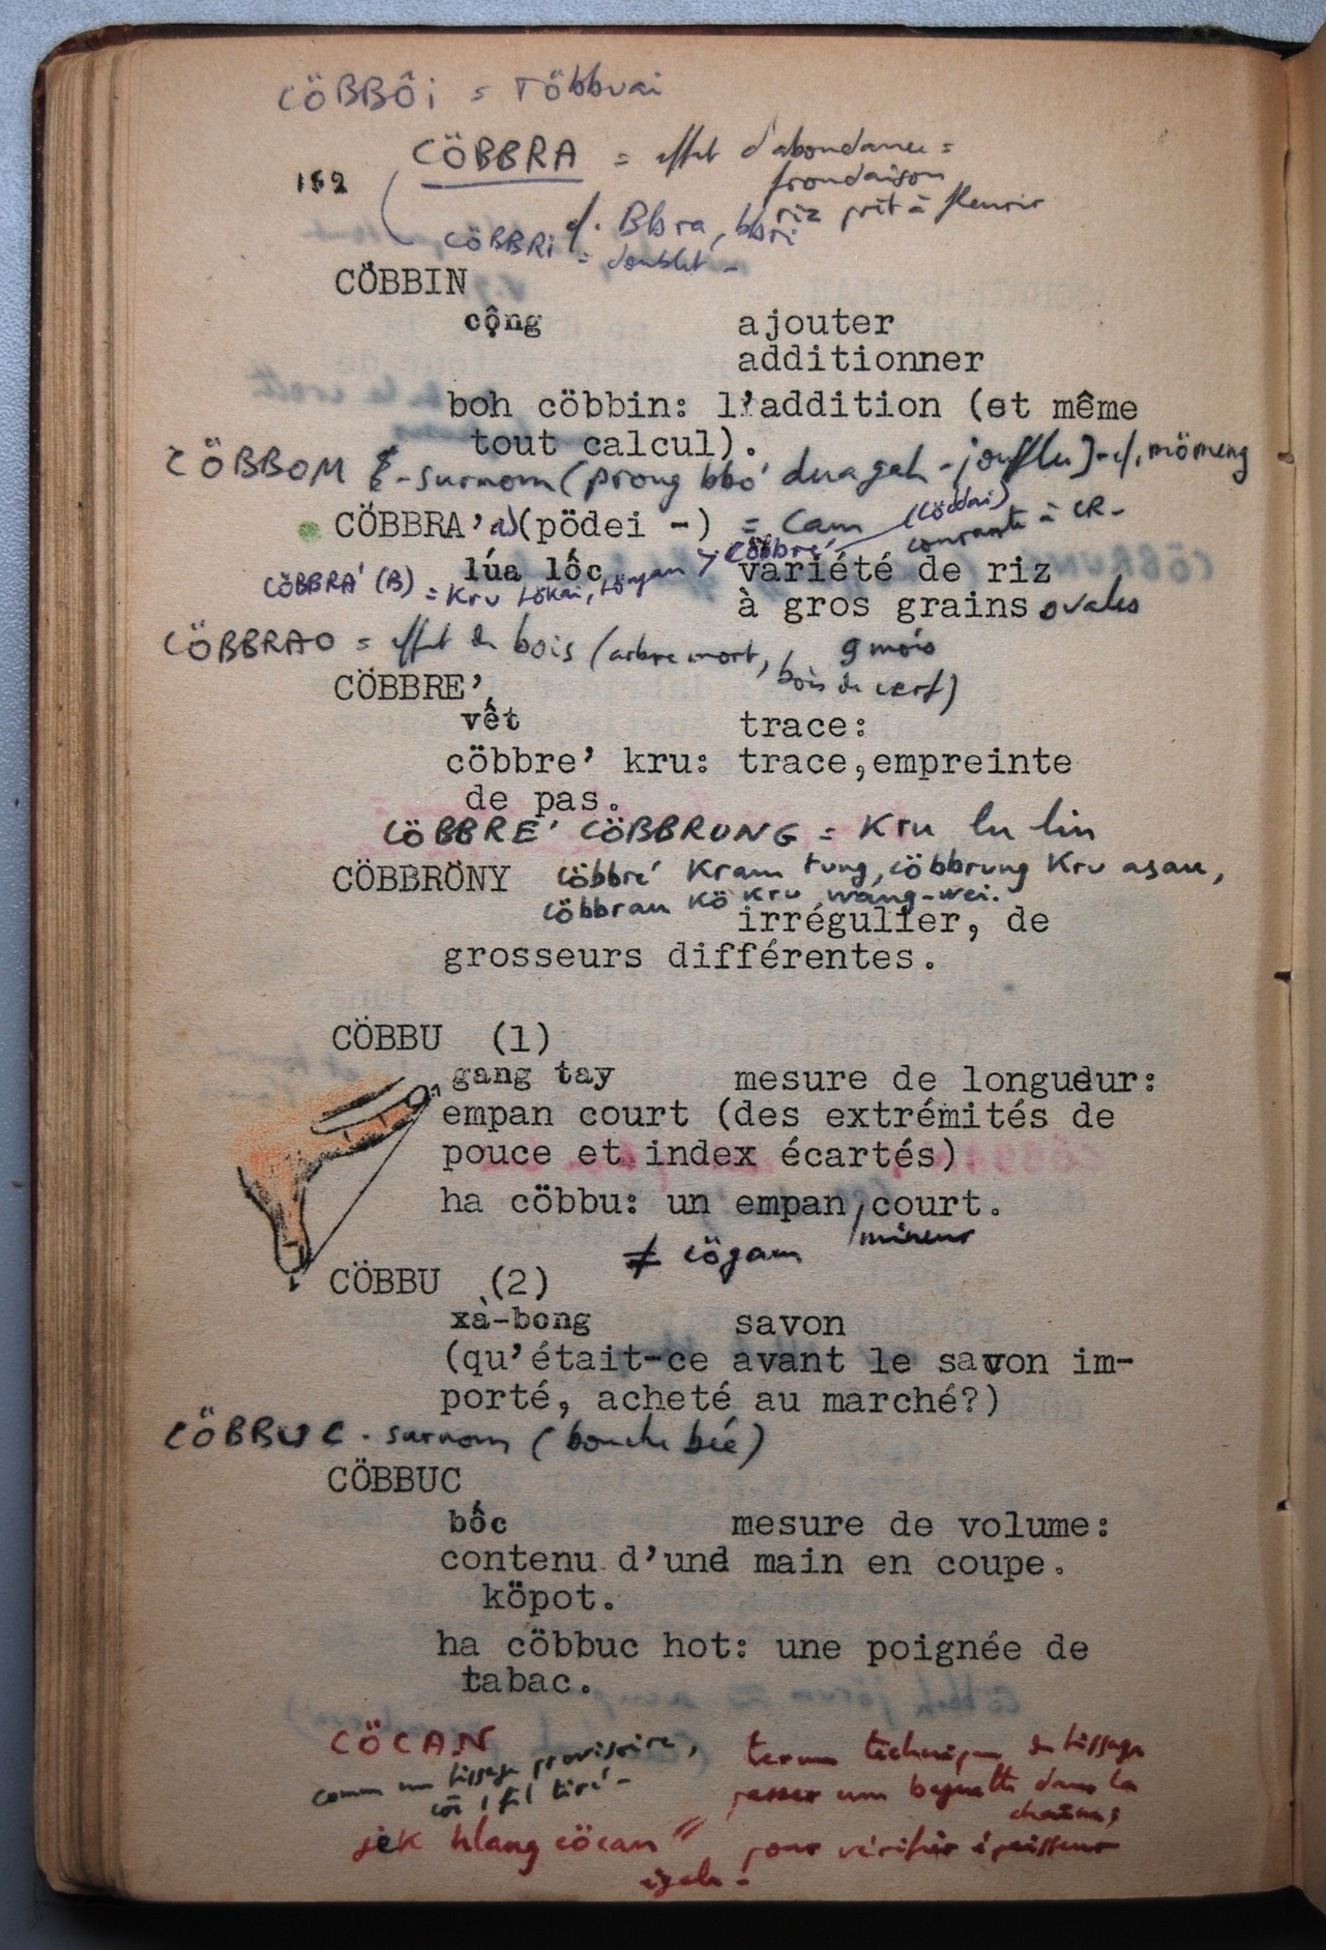 CÖBBÔi = Többuai
CÖBBRA = effet d'abondance =
frondaison
152
riz prêt à fleurir
CÖBBRi cf. Bbra, bbri
= doublet -
CÖBBIN
cộng ajouter
additionner
boh cöbbin: l'addition (et même
tout calcul).
CÖBBOM - surnom (prong bbo' dua gah - joufflu) - cf. mömeng
CÖBBRA' a) (pödei -) = Cam (cöddai)
courante à CR -
lúa lốc > cöbbre' variété de riz
CÖBBRA' (B) = Kru tökai,
à gros grains ovales
CÖBBRAO = effet de bois (arbre mort, 9 mois
bois de cerf)
CÖBBRE'
vết trace:
cöbbre' kru: trace, empreinte
de pas.
CÖBBRE' CÖBBRUNG = Kru lu lin
CÖBBRÖNY cöbbré Kram tung, cöbbrung Kru asau,
cöbbrau Kö Kru wang-wei.
irrégulier, de
grosseurs différentes.
CÖBBU (1)
gang tay mesure de longueur:
empan court (des extrémités de
pouce et index écartés)
ha cöbbu: un empan court.
/mineur
≠ cögam
CÖBBU (2)
xà-bong savon
(qu'était-ce avant le savon im-
porté, acheté au marché?)
CÖBBUC - surnom (bouche bée)
CÖBBUC
bốc mesure de volume:
contenu d'une main en coupe.
köpot.
ha cöbbuc hot: une poignée de
tabac.
CÖCAN terme technique de tissage
comme un tissage provisoire,
passer une baguette dans la
1 fil tiré -
chaîne;
jék hlang cöcan" pour vérifier épaisseur
égale -